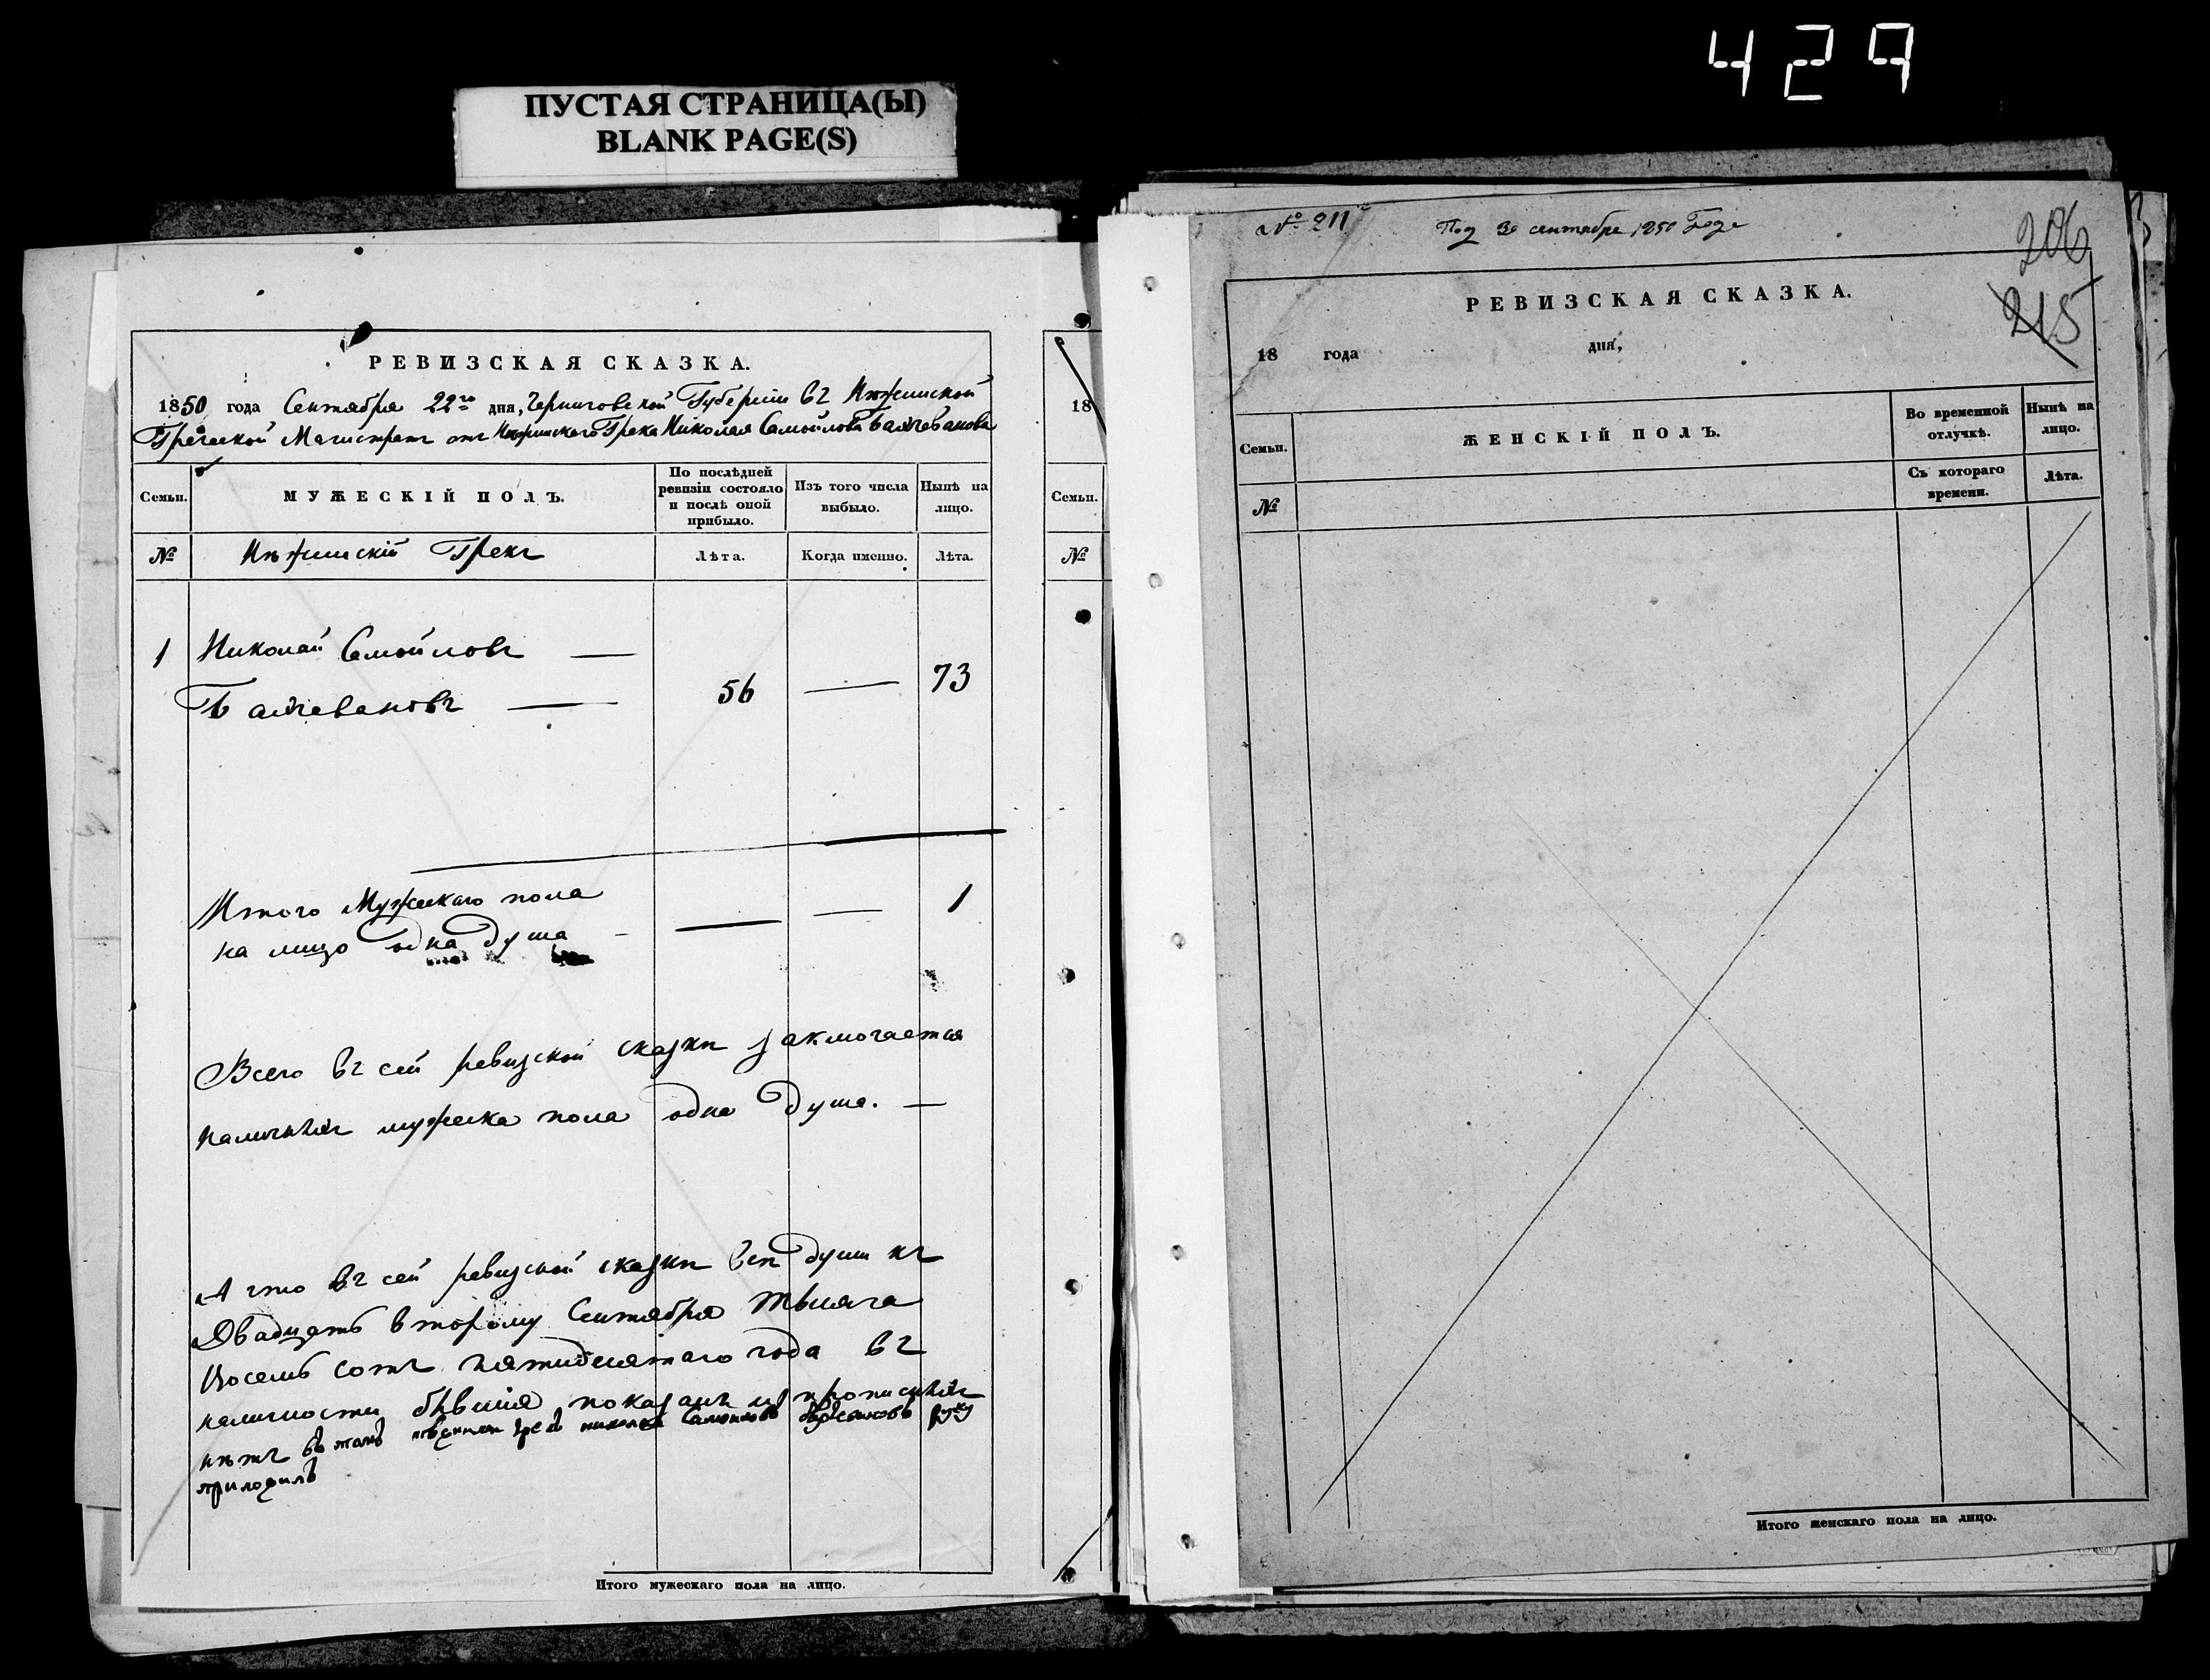 429
ПУСТАЯ СТРАНИЦА(Ы)
BLANK PAGE(S)
РЕВИЗСКАЯ СКАЗКА.
1850 года Сентября 22го дня, Черниговской Губерніи въ Нѣжинской
Греческой Магистратъ отъ Нѣжинскаго Грека Николая Самойлова
Семьи.
МУЖЕСКІЙ ПОЛЪ.
По послѣдней ревизіи состояло и послѣ оной прибыло.
Изъ того числа выбыло.
Нынѣ на лицо.
№
Нѣжинскій Грекъ
Лѣта.
Когда именно.
Лѣта.
1 Николай Самойловъ —
56 — 73
Итого Мужескаго пола
на лицо одна душа — — 1
Всего въ сей ревизской сказки заключается
мужеска пола одна душа. —
А что въ сей ревизской сказки всѣ души къ
Двадцать второму Сентября тысяча
восемь сотъ пятидесятаго года въ
наличности бывшія показаны и
нѣтъ въ томъ грекъ николай руку
приложилъ
Итого мужескаго пола на лицо.
18
Семьи.
№
№ 211
30 сентября 1850 Года
206
215
РЕВИЗСКАЯ СКАЗКА.
18 года дня,
Семьи.
ЖЕНСКІЙ ПОЛЪ.
Во временной отлучкѣ.
Нынѣ на лицо.
№
Съ котораго времени.
Лѣта.
Итого женскаго пола на лицо.